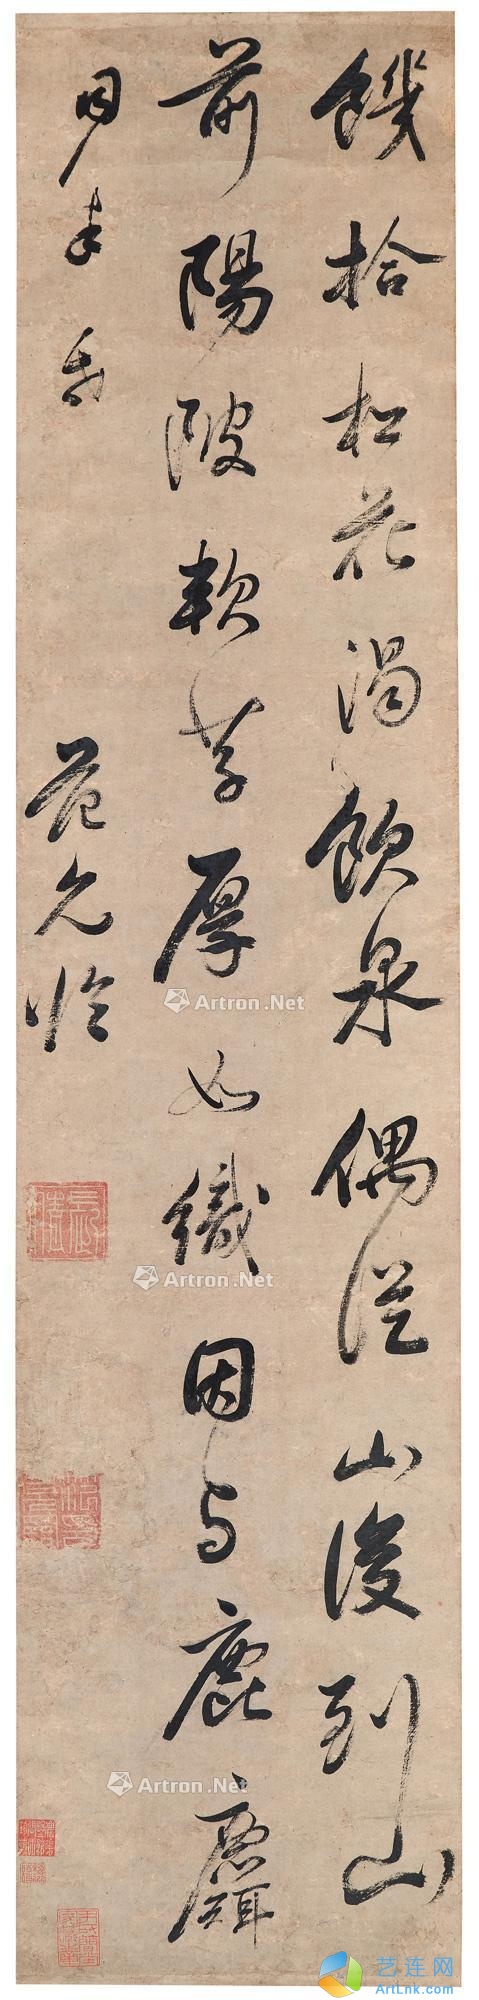 饑拾松花渴飲泉偶從山後到山
前陽陂軟草厚如織因與鹿麛
相伴眠
范允臨
Artron.Net
Artron.Net
Artron.Net
艺连网
ArtLnk.com